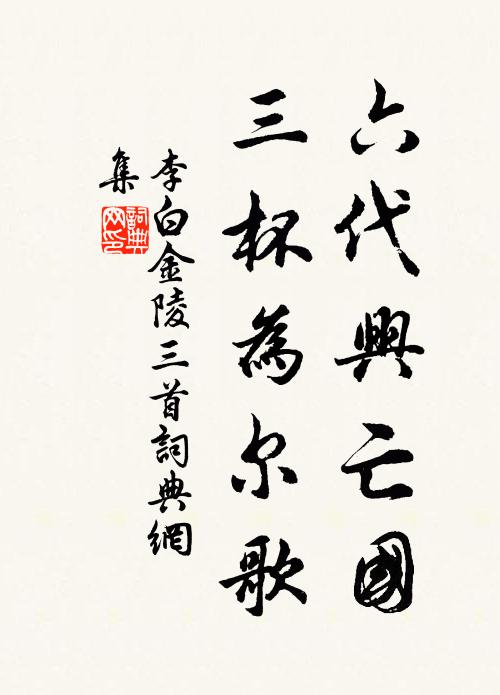 六代興亡國
三杯為尔歌
李白金陵三首詞典網
集
詞典
网印